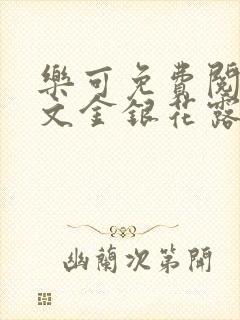 樂可免費閱
文金銀花露
幽蘭次第開